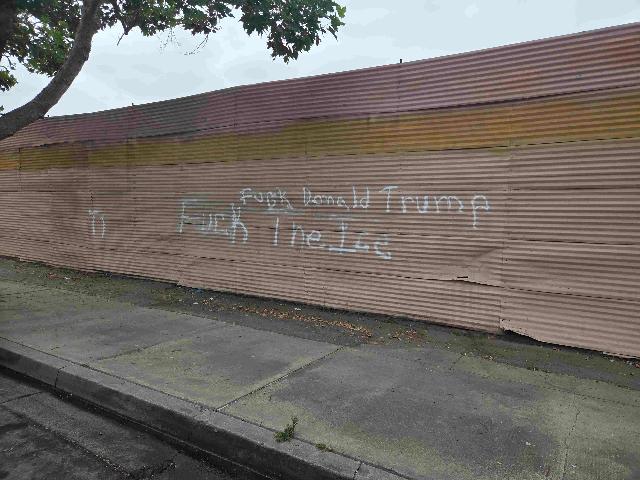 Fuck Donald Trump
Fuck The Ice